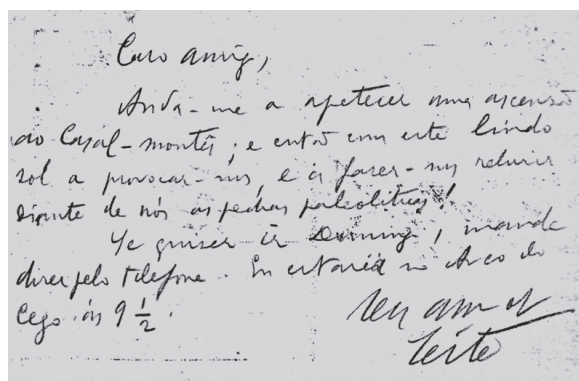 Caro amigo,
Anda-me a apetecer uma ascensão
ao Casal-montês; e então com este lindo
sol a provocar-nos, e a fazer-nos reluzir
diante de nós as pedras paleolíticas!
Se quiser ir Domingo, mande
dizer pelo telefone. Eu estarei no Arco do
Cego ás 9 1/2.
Leite